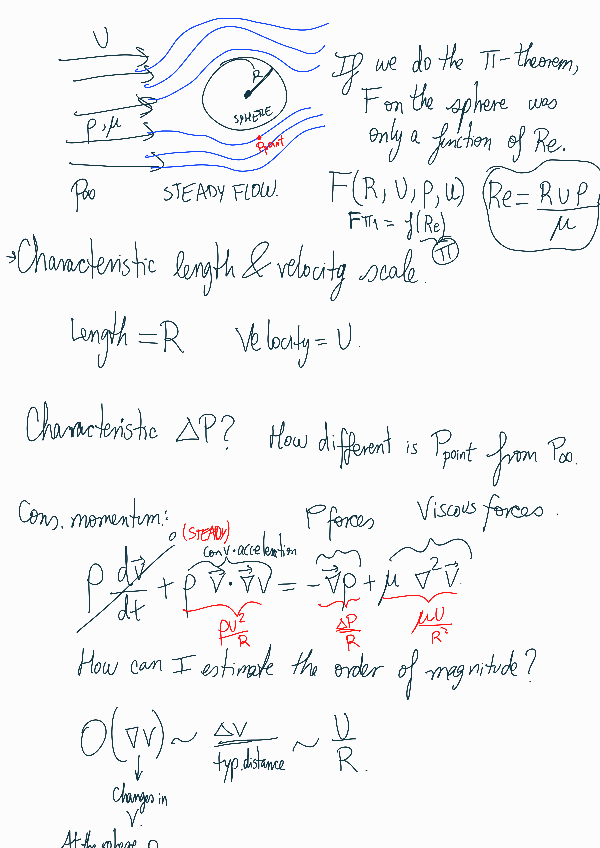 U
R
SPHERE
ρ, μ
Ppoint
P∞
STEADY FLOW.
If we do the Π-theorem,
F on the sphere was
only a function of Re.
F(R, U, ρ, μ)
FΠ1 = f(Re)
Π
Re = RUρ/μ
→Characteristic length & velocity scale.
Length = R Velocity = U.
Characteristic ΔP? How different is Ppoint from P∞.
Cons. momentum:
0 (STEADY)
conv. acceleration
P forces
Viscous forces.
ρ dv⃗/dt + ρ v⃗ · ∇⃗v = -∇⃗p + μ ∇²v⃗
ρU²/R
ΔP/R
μU/R²
How can I estimate the order of magnitude?
O(∇v) ~ ΔV/typ.distance ~ U/R.
↓
Changes in
V.
At the sphere 0